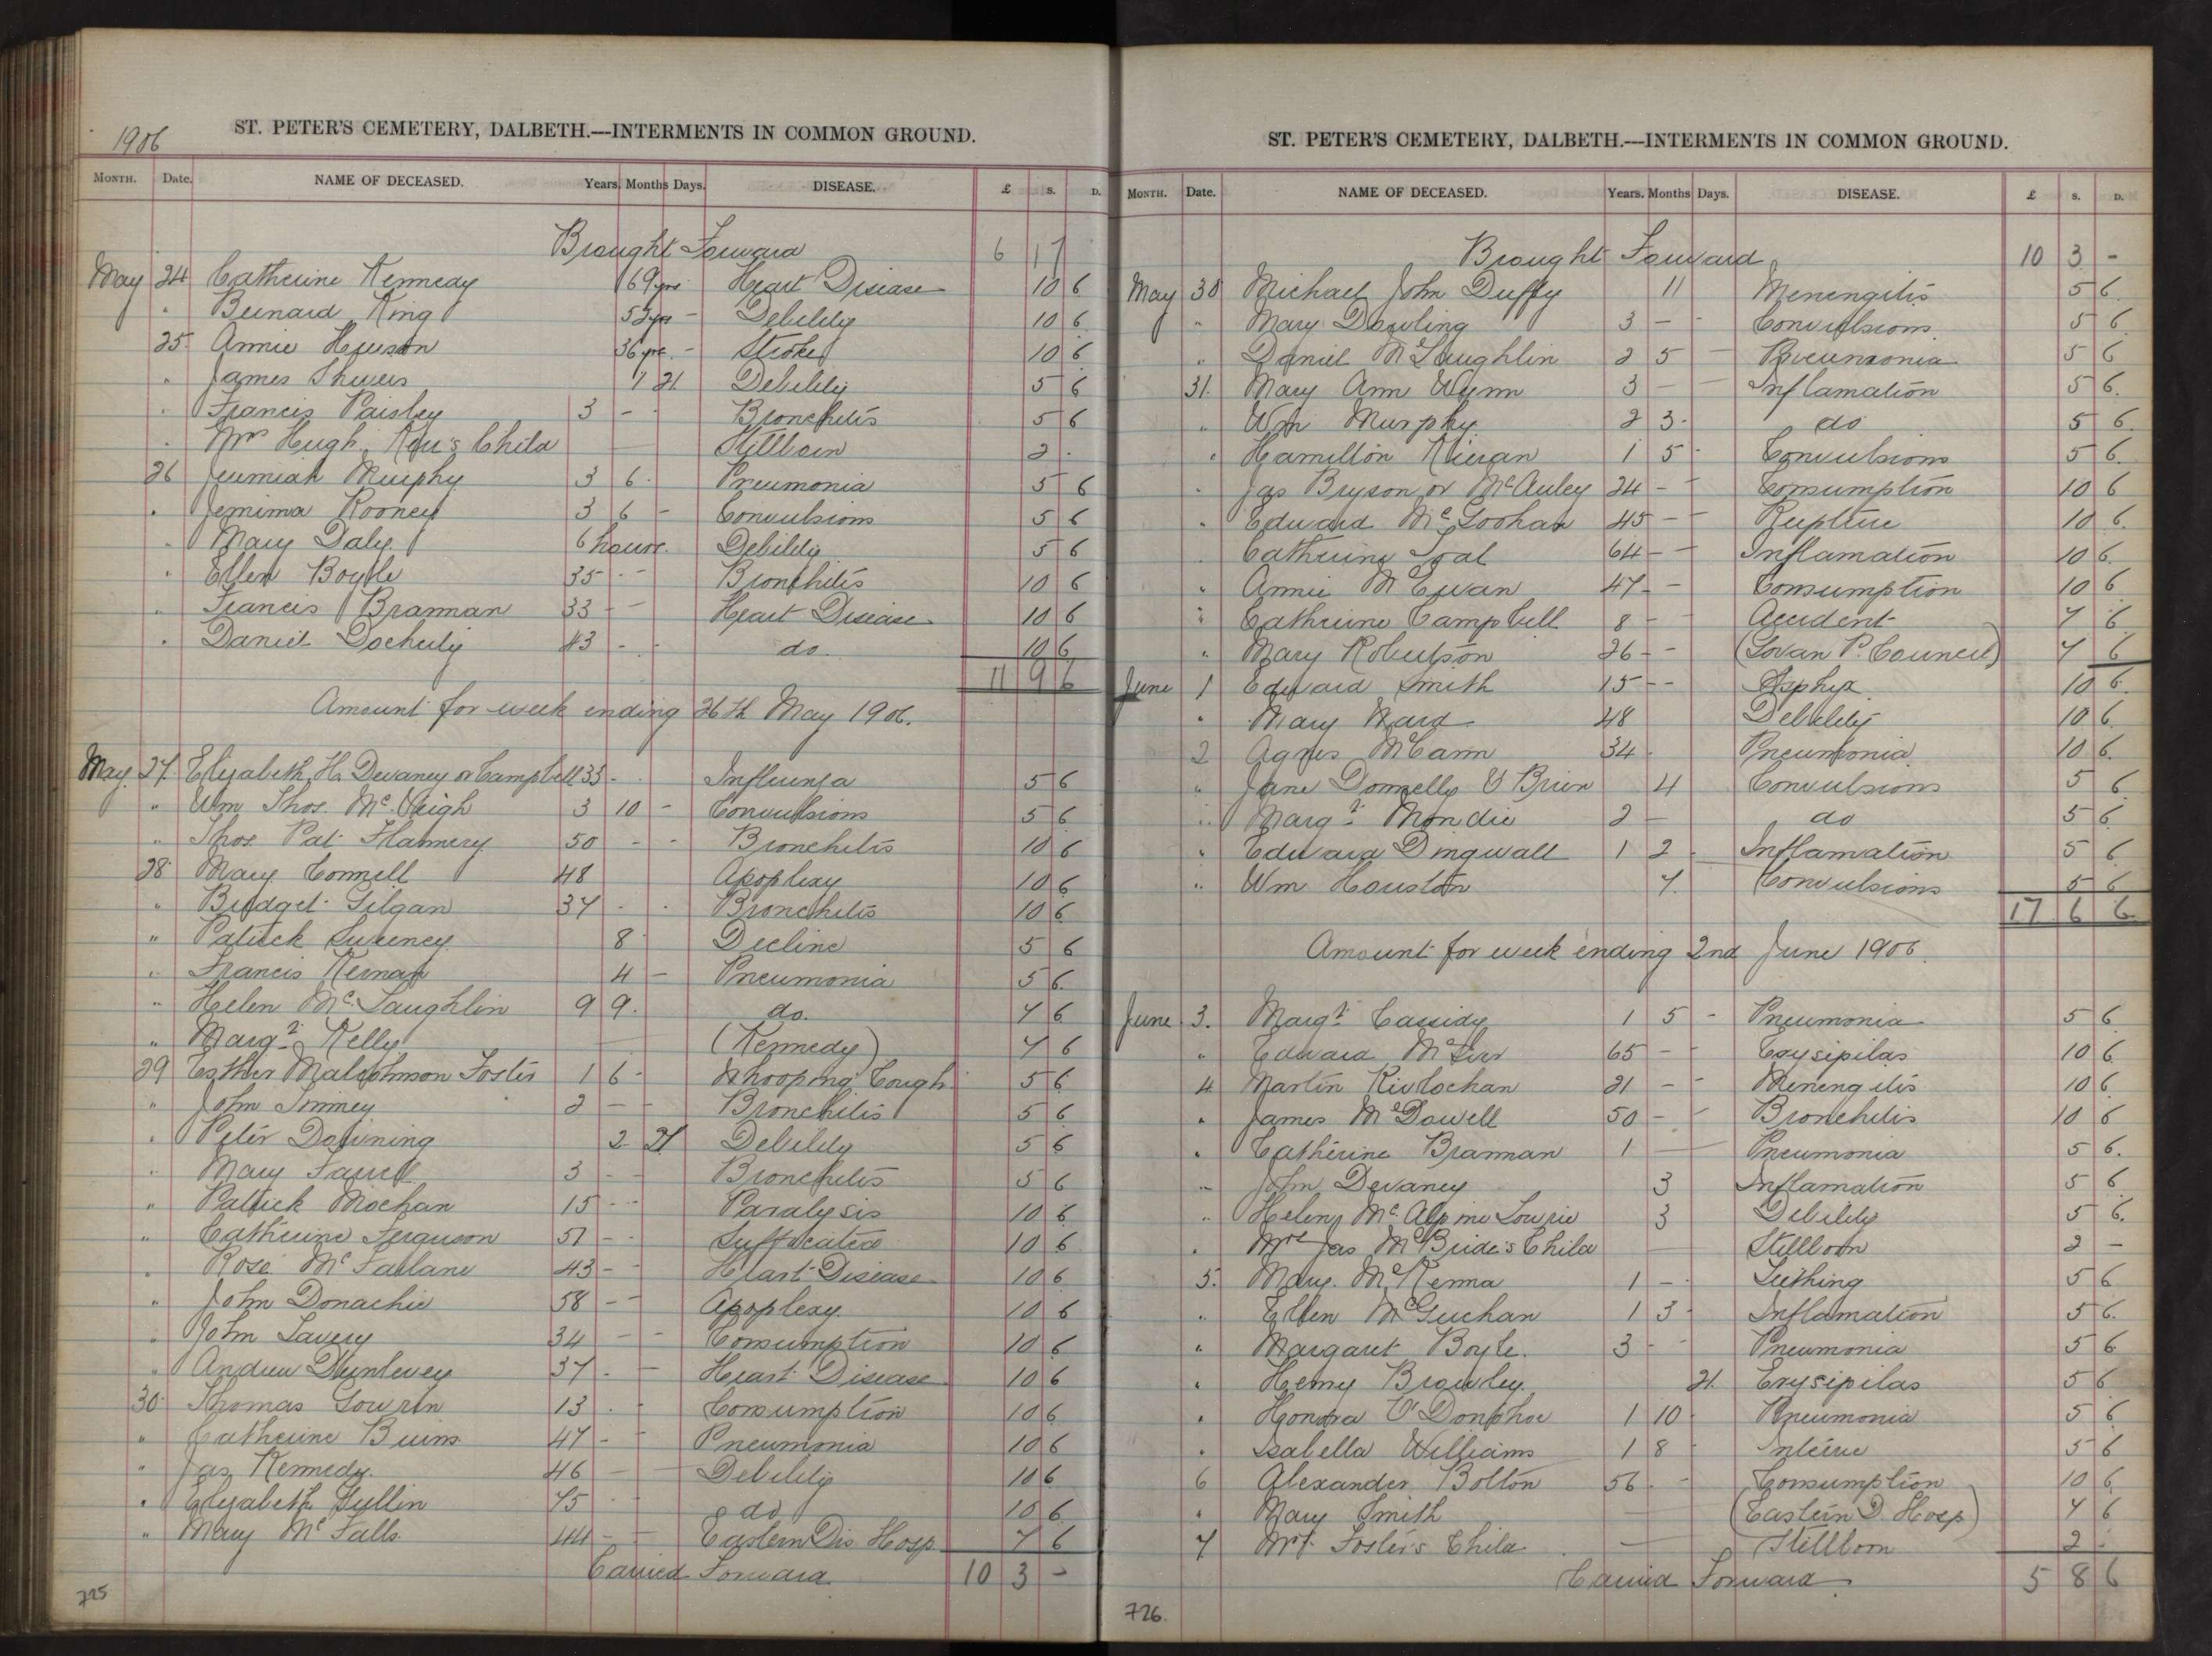 1906
ST. PETER'S CEMETERY, DALBETH.—INTERMENTS IN COMMON GROUND.
MONTH. Date. NAME OF DECEASED. Years. Months Days. DISEASE. £ s. D.
Brought Forward 6 17
May 24 Catherine Kennedy 69 yrs Heart Disease 10 6
" Bernard King 52 yrs - Debility 10 6
25 Annie Hewson 36 yrs. - Stroke 10 6
" James Shivers 1 21 Debility 5 6
" Francis Paisley 3 - - Bronchitis 5 6
" Mrs Hugh Keir's Child — Stillborn 2 -
26 Jeremiah Murphy 3 6 - Pneumonia 5 6
" Jemima Rooney 3 6 - Convulsions 5 6
" Mary Daly 6 hours. Debility 5 6
" Ellen Boyle 35 - - Bronchitis 10 6
" Francis Brannan 33 - - Heart Disease 10 6
" Daniel Docherty 43 - - do. 10 6
11 9 6
Amount for week ending 26th May 1906.
May 27 Elizabeth H. Devaney or Campbell 33 - - Influenza 5 6
" Wm Thos. McVeigh 3 10 - Convulsions 5 6
" Thos. Pat Flannery 50 - - Bronchitis 10 6
28 Mary Connell 48 Apoplexy 10 6
" Bridget Gilgan 37 - - Bronchitis 10 6
" Patrick Sweeney 8 Decline 5 6
" Francis Kernan 4 - Pneumonia 5 6
" Helen McLaughlin 9 9. do. 7 6
" Margt Kelly (Kennedy) 7 6
29 Esther Malcolmson Foster 1 6 - Whooping Cough 5 6
" John 2 - - Bronchitis 5 6
" Peter Downing 2 21 Debility 5 6
" Mary Farrell 3 - - Bronchitis 5 6
" Patrick Mochan 15 - - Paralysis 10 6
" Catherine Ferguson 57 - - Suffocated 10 6
" Rose McFarlane 43 - - Heart Disease 10 6
" John Donachie 58 - - Apoplexy 10 6
" John Lavery 34 - - Consumption 10 6
" Andrew Dunlevey 37 - - Heart Disease 10 6
30 Thomas Gowrin 13 - - Consumption 10 6
" Catherine Burns 47 - - Pneumonia 10 6
" Jas Kennedy 46 — — Debility 10 6
" Elizabeth Gullin 75 - - do 10 6
" Mary McFalls 44 - - Eastern Dis Hosp 7 6
Carried Forward 10 3 -
725
ST. PETER'S CEMETERY, DALBETH.—INTERMENTS IN COMMON GROUND.
MONTH. Date. NAME OF DECEASED. Years. Months Days. DISEASE. £ s. D.
Brought Forward 10 3 -
May 30 Michael John Duffy 11 Menengitis 5 6
" Mary Dowling 3 - - Convulsions 5 6
" Daniel McLaughlin 2 5 - Pneumonia 5 6
31. Mary Ann Wynn 3 - - Inflamation 5 6
" Wm Murphy 2 3 - do 5 6
" Hamilton Kieran 1 5 - Convulsions 5 6
" Jas Bryson or McAuley 24 - - Consumption 10 6
" Edward McGoohan 45 - - Rupture 10 6
" Catherine Toal 64 - - Inflamation 10 6
" Annie McEwan 47 - - Consumption 10 6
" Catherine Campbell 8 - - Accident 7 6
" Mary Robertson 26 - - (Govan P. Council) 7 6
June 1 Edward Smith 15 - - Asphyx 10 6
" Mary Ward 48 Debility 10 6
2 Agnes McCann 34 - Pneumonia 10 6
" Jane Donnelly O'Brien 4 Convulsions 5 6
" Margt Mondie 2 - do 5 6
" Edward Dingwall 1 2 - Inflamation 5 6
" Wm Houston 7. Convulsions 5 6
17 6 6
Amount for week ending 2nd June 1906.
June 3. Margt Cassidy 1 5 - Pneumonia 5 6
" Edward McIver 65 - - Erysipilas 10 6
4 Martin Kivlochan 21 - - Menengitis 10 6
" James McDowell 50 - - Bronchitis 10 6
" Catherine Brannan 1 — Pneumonia 5 6
" John Devaney 3 Inflamation 5 6
" Helen McAlpine Lowrie 3 Debility 5 6
" Mrs Jas McBride's Child — Stillborn 2 -
5. Mary McKenna 1 - - Teething 5 6
" Ellen McGuchan 1 3 - Inflamation 5 6
" Margaret Boyle. 3 - - Pneumonia 5 6
" Henry Browley 21. Erysipilas 5 6
" Honora O'Donohoe 1 10 - Pneumonia 5 6
" Isabella Williams 1 8 - 5 6
6 Alexander Bolton 56 - - Consumption 10 6
" Mary Smith — (Eastern D. Hosp) 7 6
7 Mrs Foster's Child — Stillborn 2 -
Carried Forward 5 8 6
726.